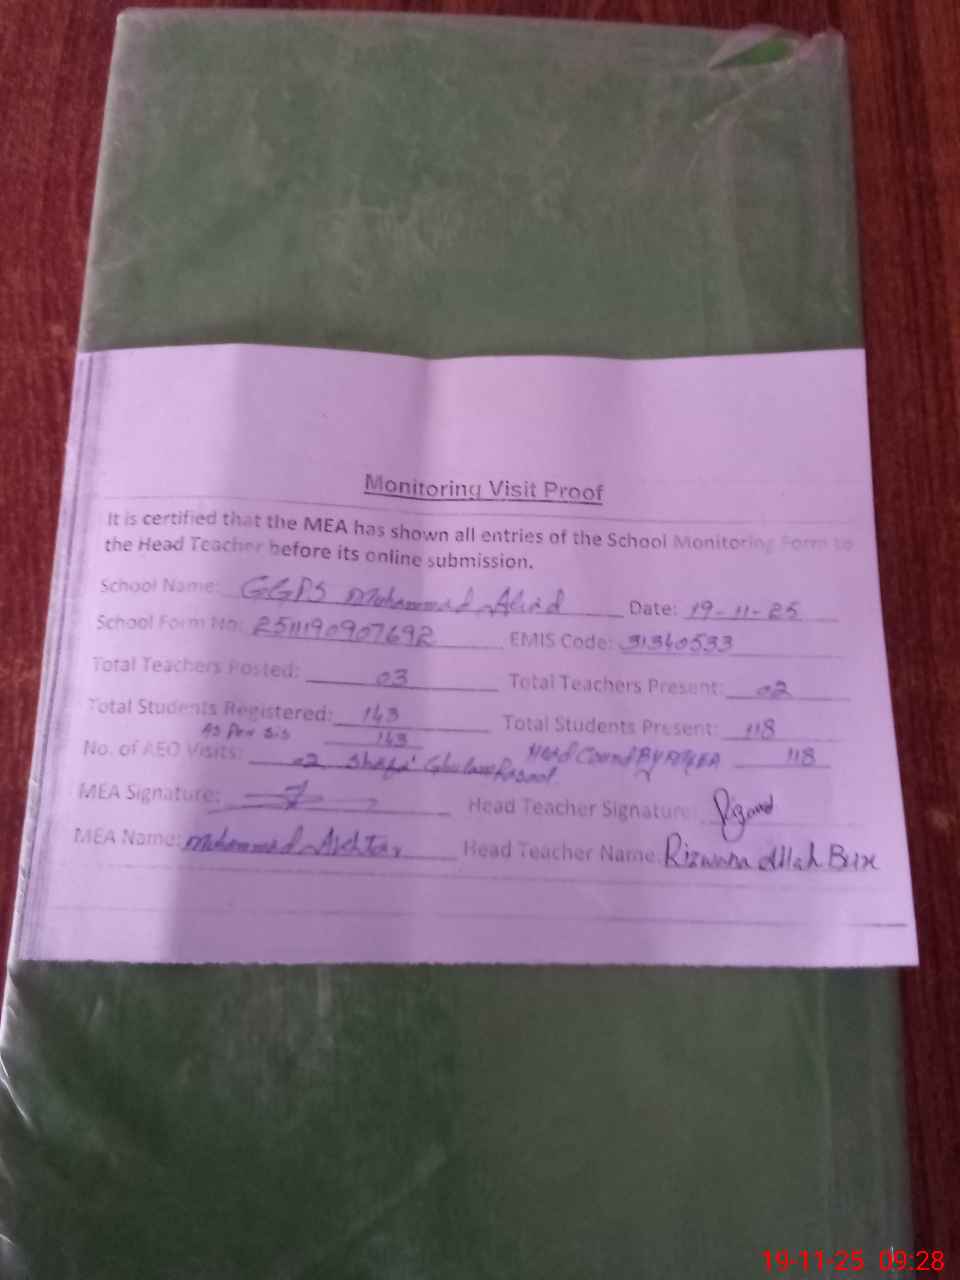 Monitoring Visit Proof
It is certified that the MEA has shown all entries of the School Monitoring Form to
the Head Teacher before its online submission.
School Name: GGPS Muhammad Date: 19-11-25
School Form No: 2511190907692 EMIS Code: 31340533
Total Teachers Posted: 03 Total Teachers Present: 02
Total Students Registered: 143 Total Students Present: 118
As Per Sis 143
No. of AEO Visits: 02 Ghulam Rasool Head Count By MEA 118
MEA Signature: Head Teacher Signature:
MEA Name: Muhammad Head Teacher Name: Rizwana Allah Bux
19-11-25 09:28